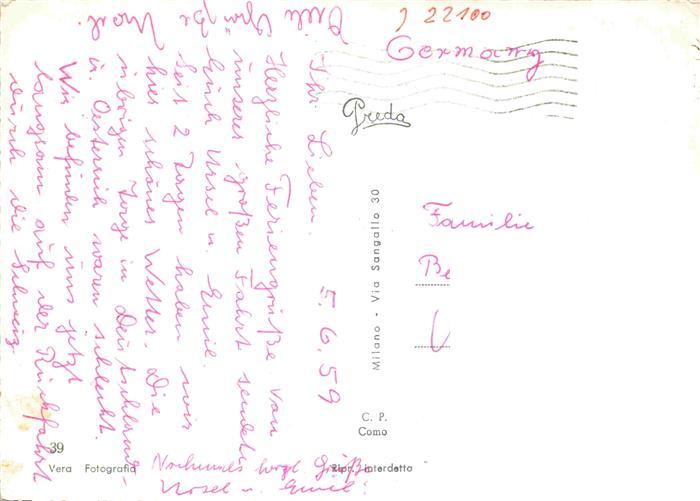 5.6.59
Ihr Lieben.
Herzliche Feriengrüße von
unserer großen Fahrt sendet
Euch Ursel u. Emil.
Seit 2 Tagen haben wir
hier schönes Wetter. Die
übrigen Tage in Deutschland
u. Oesterreich waren schlecht.
Wir befinden uns jetzt
langsam auf der Rückfahrt
durch die Schweiz.
Viele Grüße
Nochmals herzl. Grüße
Ursel u. Emil!
22100
Germany
Preda
Familie
Be
Milano - Via Sangallo 30
C. P.
Como
39
Vera Fotografia
Ripr. interdetta